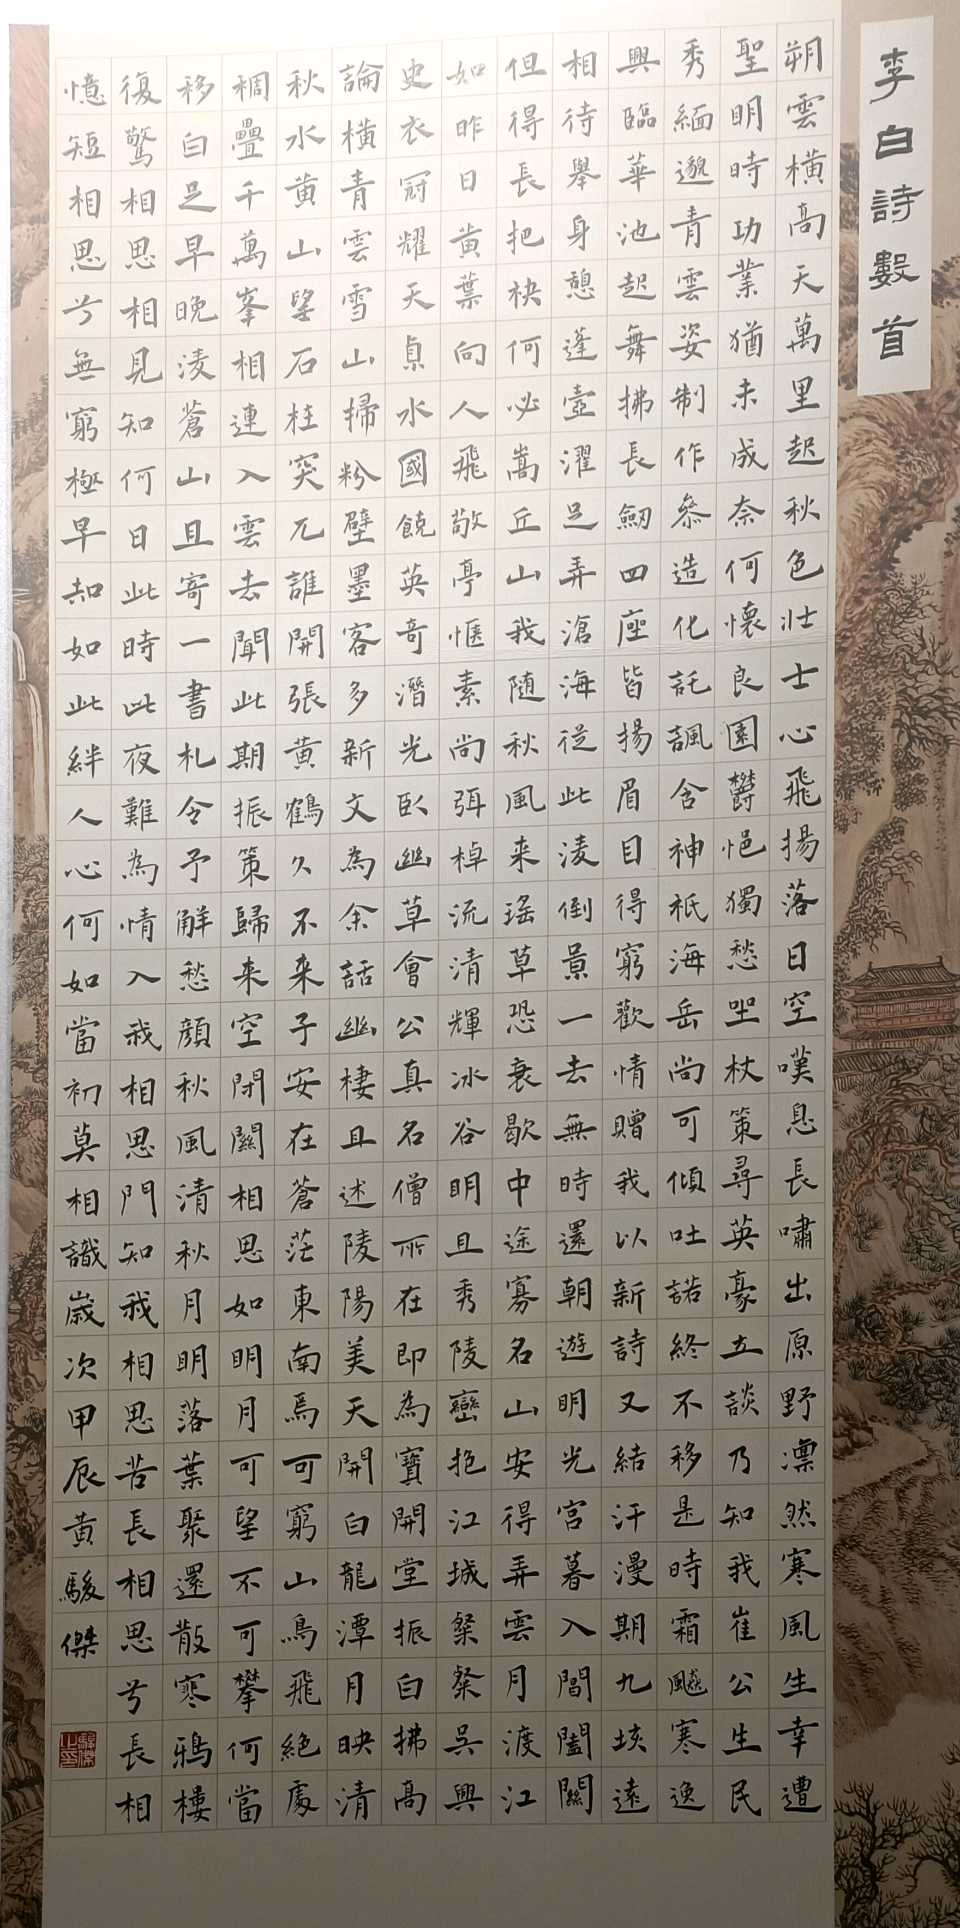 李白詩數首
朔雲橫高天萬里起秋色壯士心飛揚落日空嘆息長嘯出原野凛然寒風生幸遭
聖明時功業猶未成奈何懷良園欝悒獨愁坐杖策尋英豪立談乃知我崔公生民
秀緬邈青雲姿制作參造化託諷含神祇海岳尚可傾吐諾終不移是時霜飈寒逸
興臨華池起舞拂長劒四座皆揚眉目得窮歡情贈我以新詩又結汗漫期九垓遠
相待舉身憩蓬壺濯足弄滄海從此淩倒景一去無時還朝遊明光宮暮入閶闔關
但得長把袂何必嵩丘山我随秋風来瑤草恐衰歇中途寡名山安得弄雲月渡江
如昨日黃葉向人飛敬亭愜素尚弭棹流清輝冰谷明且秀陵巒抱江城粲粲吳興
史衣冠耀天貞水國饒英奇潜光臥幽草會公真名僧所在即為寶開堂振白拂高
論橫青雲雪山掃粉壁墨客多新文為余話幽棲且述陵陽美天開白龍潭月映清
秋水黃山望石柱突兀誰開張黃鶴久不来子安在蒼茫東南焉可窮山鳥飛絕處
稠疊千萬峯相連入雲去聞此期振策歸来空閉關相思如明月可望不可攀何當
移白足早晚淩蒼山且寄一書札令予解愁顏秋風清秋月明落葉聚還散寒鴉棲
復驚相思相見知何日此時此夜難為情入我相思門知我相思苦長相思兮長相
憶短相思兮無窮極早知如此絆人心何如當初莫相識歲次甲辰黃駿傑
駿傑之印